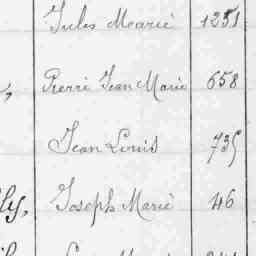 Jules Marie 1251
, Pierre Jean Marie 658
Jean Louis 735
lly, Joseph Marie 46